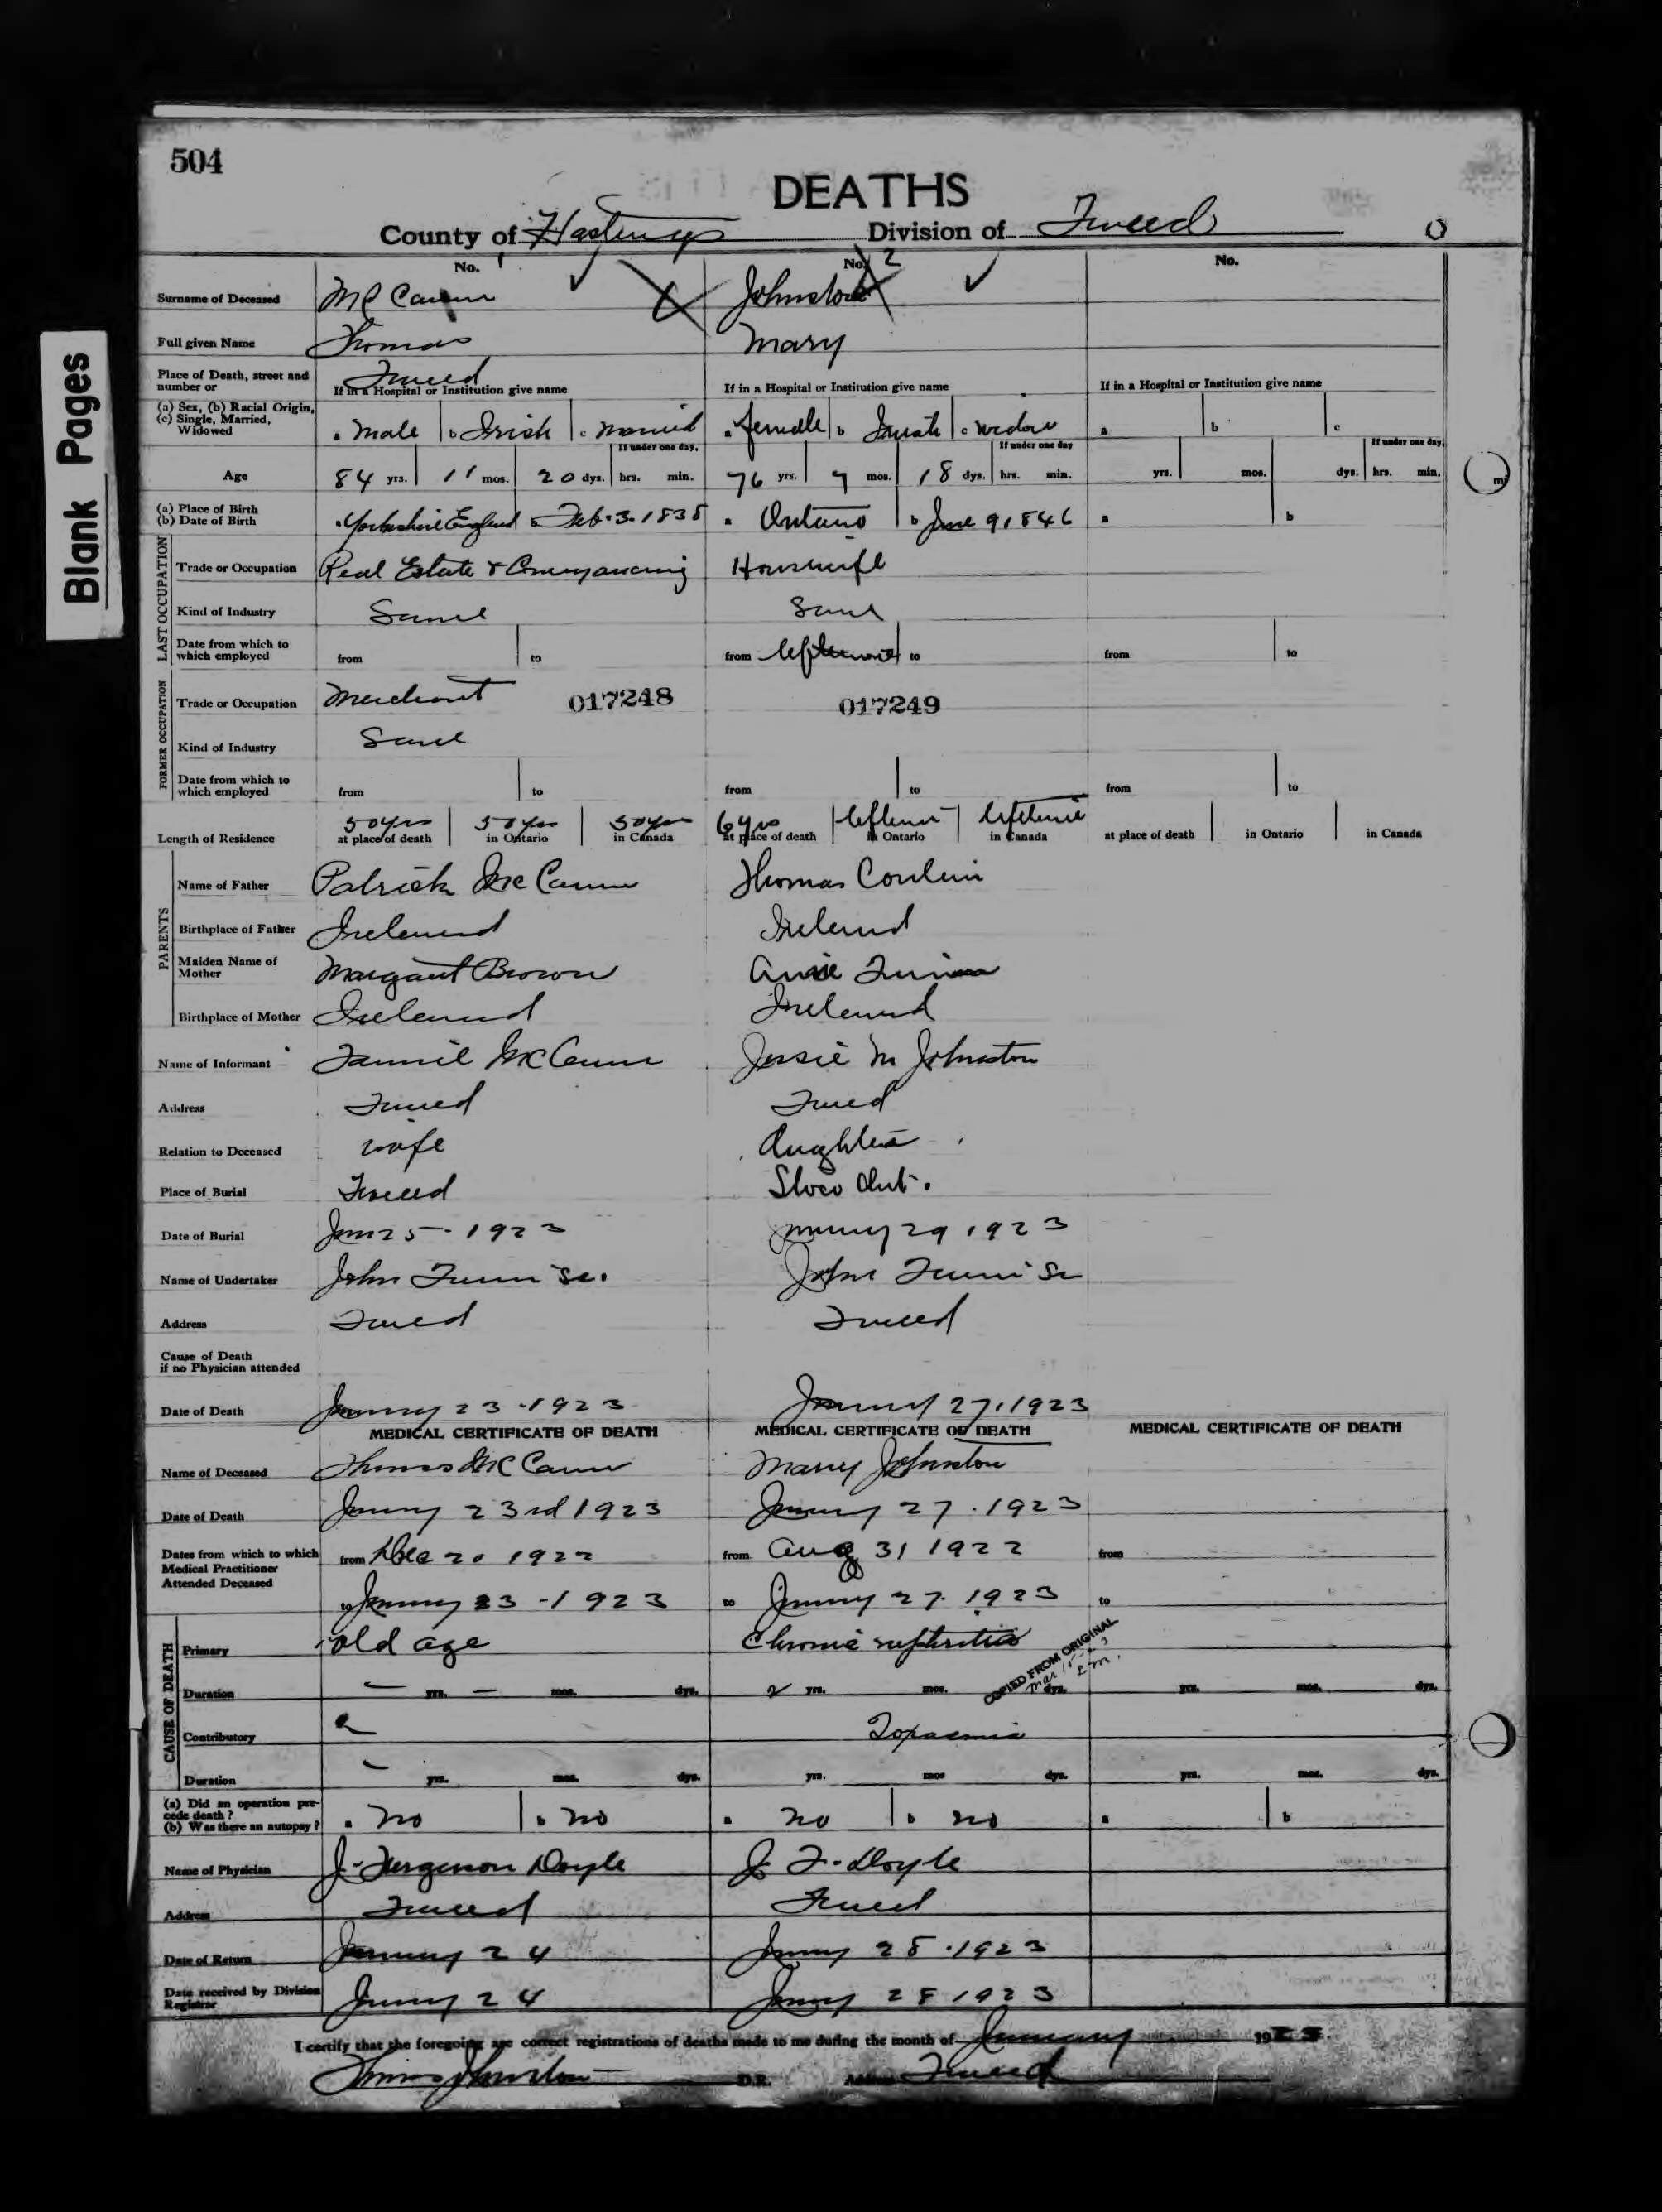 Blank Pages
504
DEATHS
County of Hastings Division of Tweed
No. 1 No. 2 No.
Surname of Deceased McCann Johnston
Full given Name Thomas Mary
Place of Death, street and number or Tweed
If in a Hospital or Institution give name If in a Hospital or Institution give name If in a Hospital or Institution give name
(a) Sex, (b) Racial Origin, (c) Single, Married, Widowed a male b Irish c married a female b Irish c widow a b c
If under one day, If under one day If under one day,
Age 84 yrs. 11 mos. 20 dys. hrs. min. 76 yrs. 7 mos. 18 dys. hrs. min. yrs. mos. dys. hrs. min.
(a) Place of Birth (b) Date of Birth a Yorkshire England b Feb. 3. 1838 a Ontario b June 9 1846 a b
LAST OCCUPATION
Trade or Occupation Real Estate & Conveyancing Housewife
Kind of Industry Same Same
Date from which to which employed from to from lifetime to from to
FORMER OCCUPATION
Trade or Occupation Merchant 017248 017249
Kind of Industry Same
Date from which to which employed from to from to from to
Length of Residence 50 yrs at place of death 50 yrs in Ontario 50 yrs in Canada 6 yrs at place of death lifetime in Ontario lifetime in Canada at place of death in Ontario in Canada
PARENTS
Name of Father Patrick McCann Thomas
Birthplace of Father Ireland Ireland
Maiden Name of Mother Margaret Brown Annie
Birthplace of Mother Ireland Ireland
Name of Informant Fannie McCann Jessie M Johnston
Address Tweed Tweed
Relation to Deceased wife daughter
Place of Burial Tweed Stoco Ont.
Date of Burial Jan 25 - 1923 January 29 1923
Name of Undertaker John Sr. John Sr
Address Tweed Tweed
Cause of Death if no Physician attended
Date of Death January 23 - 1923 January 27, 1923
MEDICAL CERTIFICATE OF DEATH MEDICAL CERTIFICATE OF DEATH MEDICAL CERTIFICATE OF DEATH
Name of Deceased Thomas McCann Mary Johnston
Date of Death January 23rd 1923 January 27. 1923
Dates from which to which Medical Practitioner Attended Deceased from Dec 20 1922 from Aug 31 1922 from
to January 23 - 1923 to January 27. 1923 to
CAUSE OF DEATH
Primary old age Chronic nephritis
COPIED FROM ORIGINAL
Duration — yrs. — mos. dys. 2 yrs. mos. dys. yrs. mos. dys.
Contributory
Duration yrs. mos. dys. yrs. mos dys. yrs. mos. dys.
(a) Did an operation precede death? (b) Was there an autopsy? a no b no a no b no a b
Name of Physician J. Ferguson Doyle J. F. Doyle
Address Tweed Tweed
Date of Return January 24 January 28. 1923
Date received by Division Registrar January 24 January 28 1923
I certify that the foregoing are correct registrations of deaths made to me during the month of January 1923.
Johnston D.R. Address Tweed